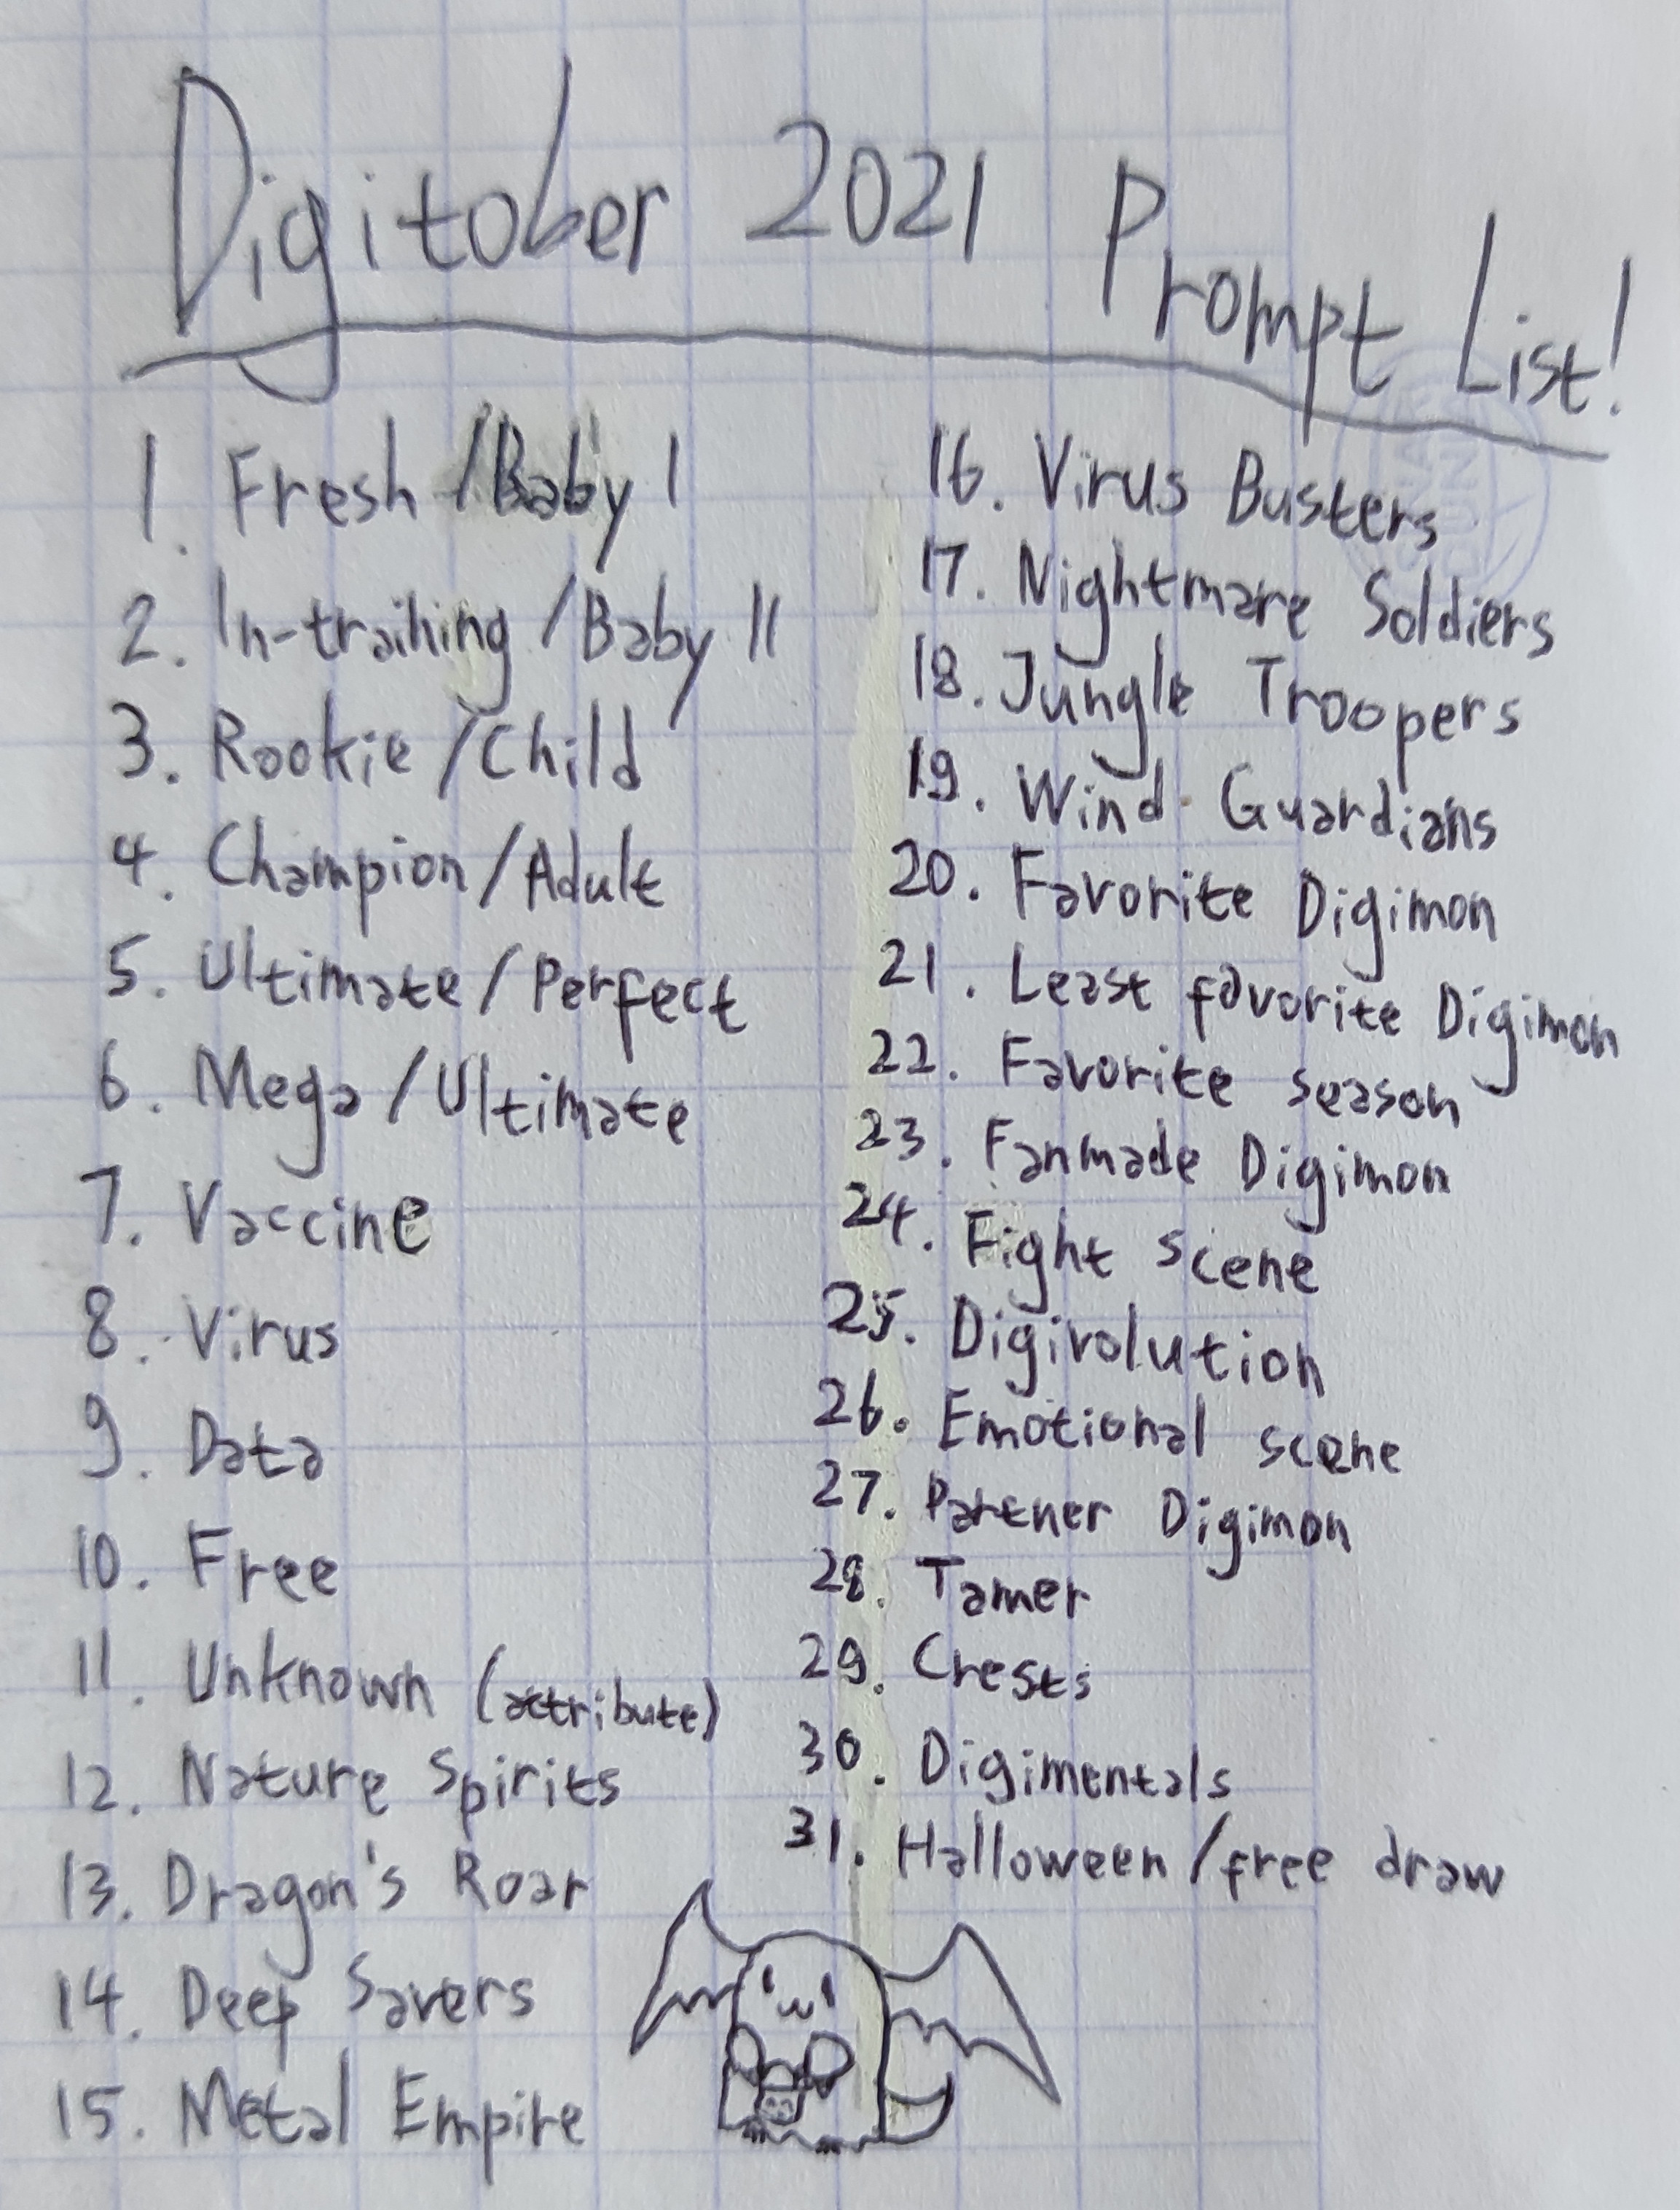 Digitober 2021 Prompt List!
1. Fresh/Baby I
2. In-training/Baby II
3. Rookie/Child
4. Champion/Adult
5. Ultimate/Perfect
6. Mega/Ultimate
7. Vaccine
8. Virus
9. Data
10. Free
11. Unknown (attribute)
12. Nature Spirits
13. Dragon's Roar
14. Deep Savers
15. Metal Empire
16. Virus Busters
17. Nightmare Soldiers
18. Jungle Troopers
19. Wind Guardians
20. Favorite Digimon
21. Least favorite Digimon
22. Favorite season
23. Fanmade Digimon
24. Fight scene
25. Digivolution
26. Emotional scene
27. Partner Digimon
28. Tamer
29. Crests
30. Digimentals
31. Halloween/free draw